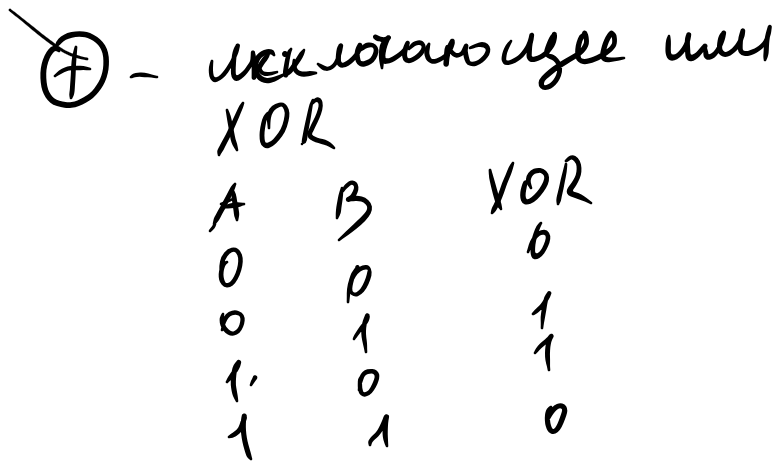 ⊕ - исключающее или
XOR
A B XOR
0 0 0
0 1 1
1 0 1
1 1 0